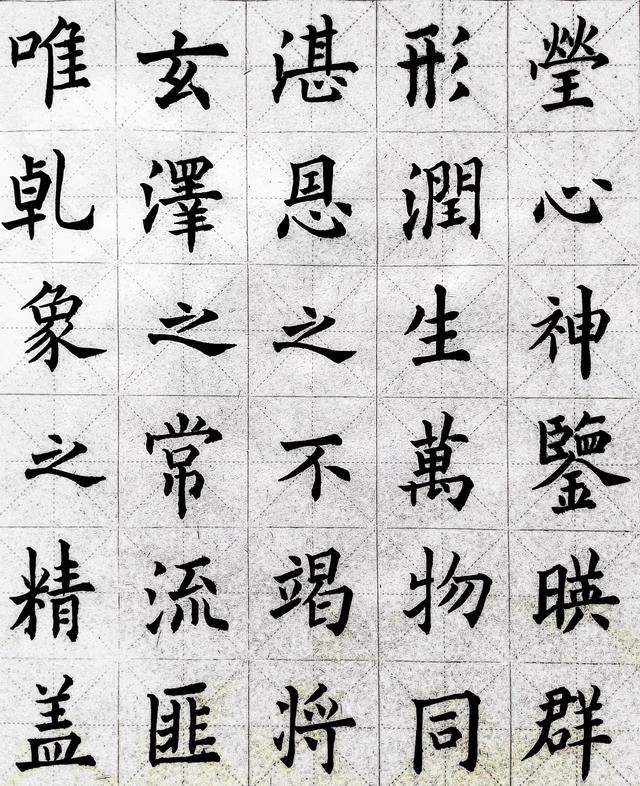 瑩心神鑒暎群
形潤生萬物同
湛恩之不竭將
玄澤之常流匪
唯乹象之精盖